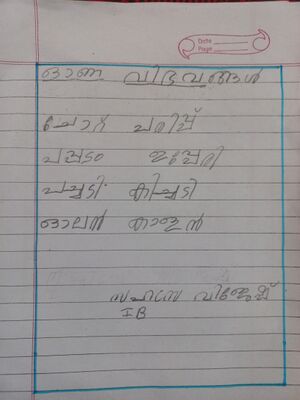 Date
Page
ഓണ വിഭവങ്ങൾ
ചോറ് പരിപ്പ്
പപ്പടം ഉപ്പേരി
പച്ചടി കിച്ചടി
ഓലൻ കാളൻ
I B